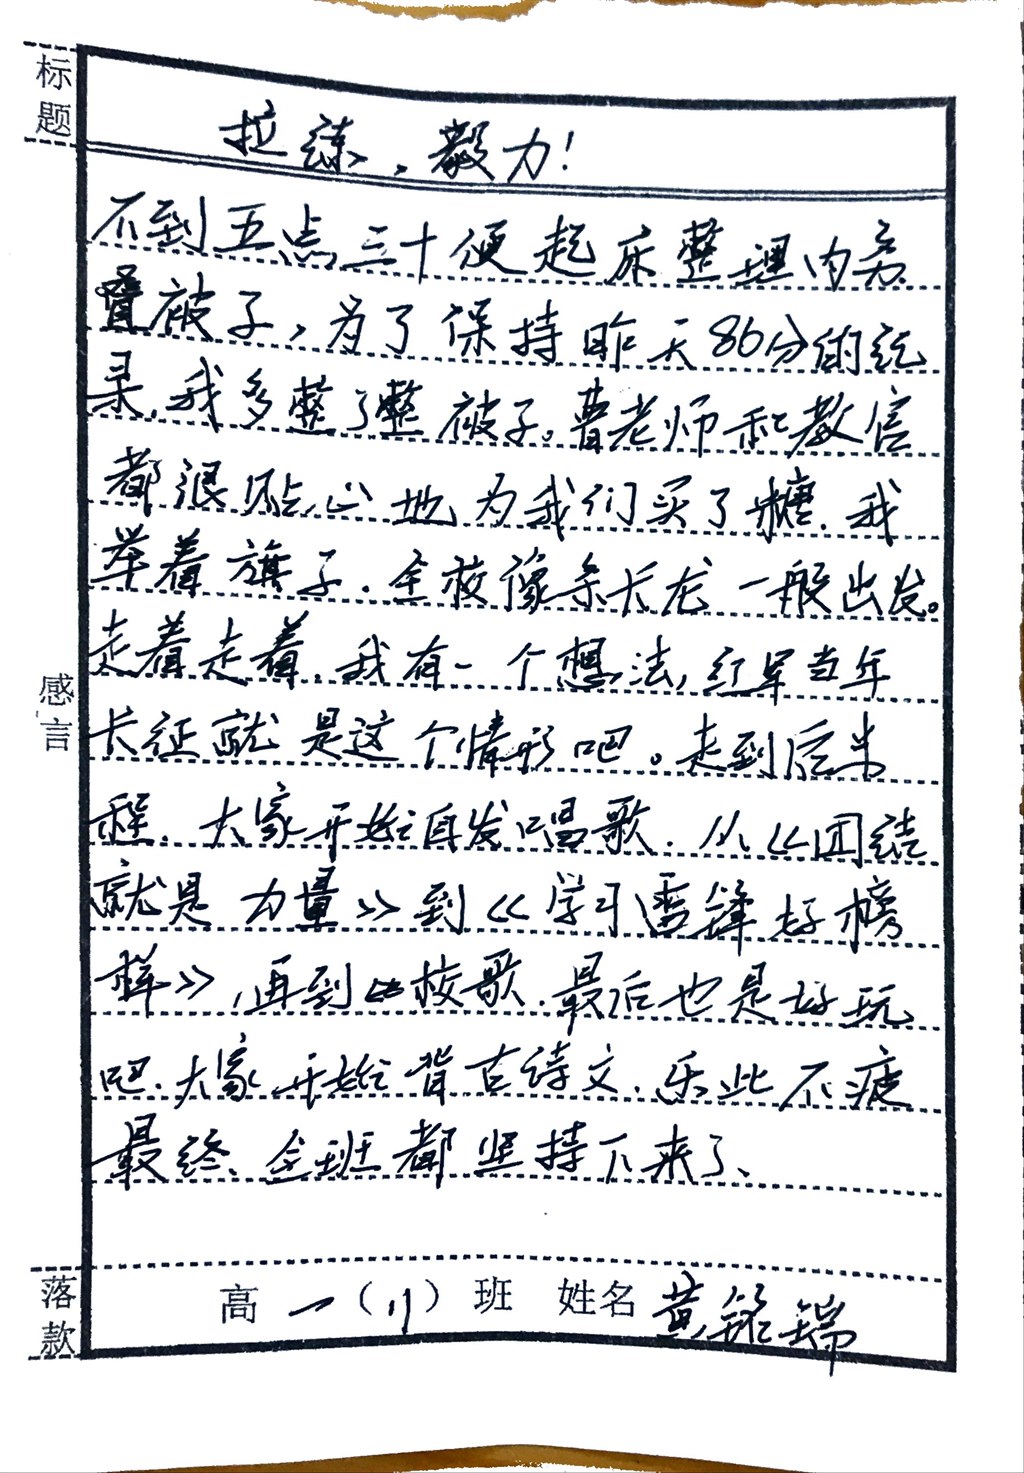 标题
拉练，毅力！
不到五点三十便起床整理内务
叠被子，为了保持昨天86分的纪
录，我多整了整被子。曹老师和教官
都很贴心地为我们买了糖，我
举着旗子，全校像条长龙一般出发。
走着走着，我有一个想法，红军当年
长征就是这个情形吧。走到后半
程，大家开始自发唱歌，从《团结
就是力量》到《学习雷锋好榜
样》，再到校歌，最后也是好玩
吧，大家开始背古诗文，乐此不疲
最终，全班都坚持下来了、
感言
落款
高一（11）班 姓名 黄铭瑞